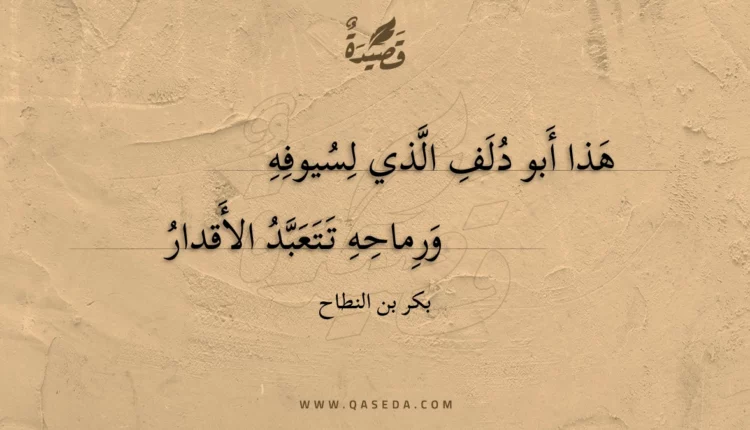 قَصِيْدَةٌ
هَذا أَبو دُلَفِ الَّذي لِسُيوفِهِ
وَرِماحِهِ تَتَعَبَّدُ الأَقدارُ
بكر بن النطاح
WWW.QASEDA.COM